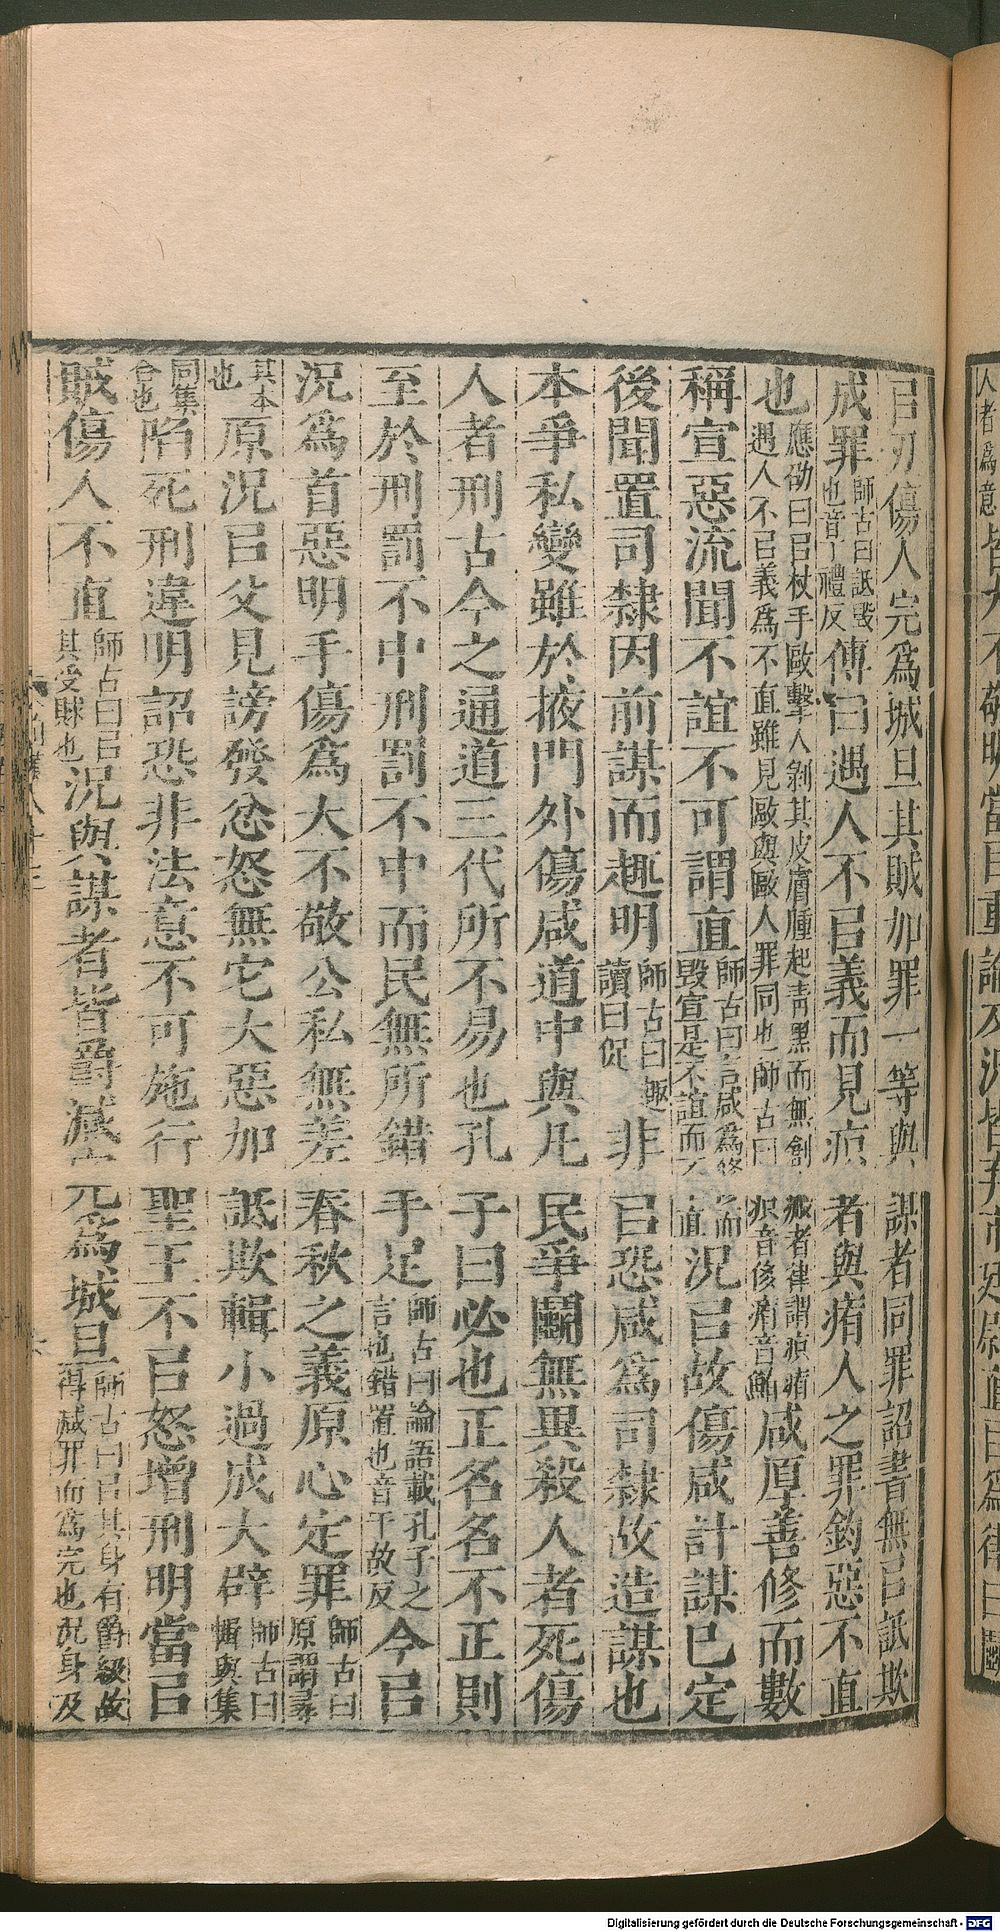 㠯刃傷人完爲城旦其賊加罪一等與謀者同罪詔書無㠯詆欺
成罪師古曰詆毀也音丁禮反傳曰遇人不㠯義而見疻者與痏人之罪鈞惡不直
也應劭曰㠯杖手毆擊人剝其皮膚腫起青黑而無創瘢者律謂疻痏遇人不㠯義爲不直雖見毆與毆人罪同也師古曰疻音侈痏音鮪咸厚善修而數
稱宣惡流聞不誼不可謂直師古曰言咸爲修而毀宣是不誼而不直況㠯故傷咸計謀已定
後聞置司隸因前謀而趣明師古曰趣讀曰促非㠯恐咸爲司隸故造謀也
本爭私變雖於掖門外傷咸道中與凡民爭鬭無異殺人者死傷
人者刑古今之通道三代所不易也孔子曰必也正名名不正則
至於刑罰不中刑罰不中而民無所錯手足師古曰論語載孔子之言也錯置也音千故反今㠯
況爲首惡明手傷爲大不敬公私無差春秋之義原心定罪師古曰原謂尋
其本也原況㠯父見謗發忿怒無它大惡加詆欺輯小過成大辟師古曰輯與集
同集合也陷死刑違明詔恐非法意不可施行聖王不㠯怒增刑明當㠯
賊傷人不直師古曰㠯其受賕也況與謀者皆爵減完爲城旦師古曰㠯其身有爵級故得減罪而爲完也況身及
人者爲意
論
Digitalisierung gefördert durch die Deutsche Forschungsgemeinschaft - DFG